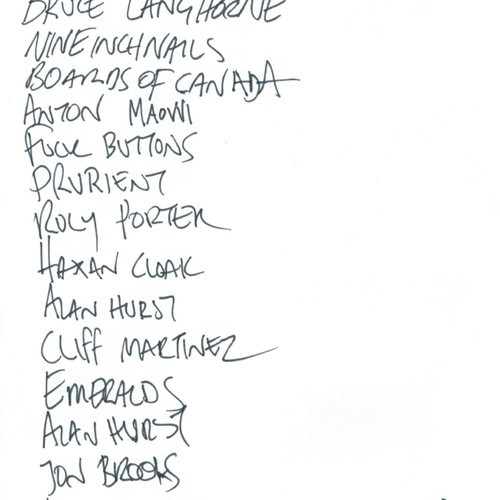 BRUCE LANGHORNE
NINE INCH NAILS
BOARDS OF CANADA
ANTON MAOVVI
FUCK BUTTONS
PRURIENT
ROLY PORTER
HAXAN CLOAK
ALAN HURST
CLIFF MARTINEZ
EMERALDS
ALAN HURST
JON BROOKS